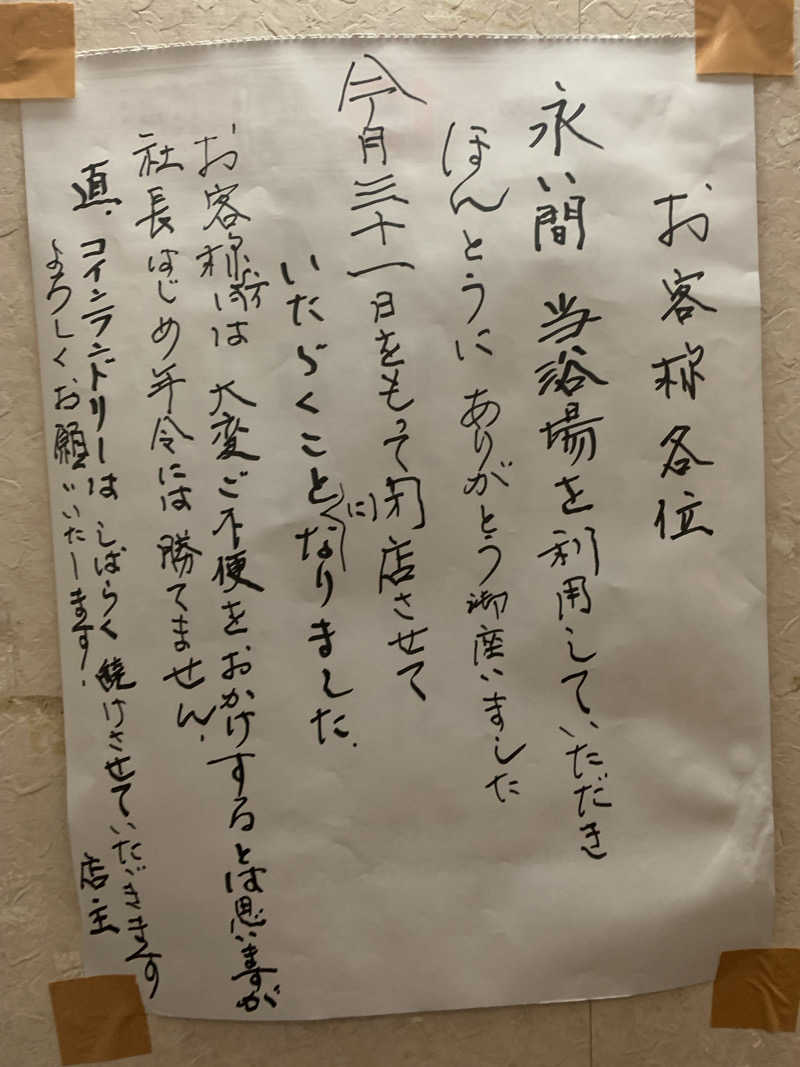 お客様各位
永い間 当浴場を利用していただき
ほんとうに ありがとう御座いました
今月三十一日をもって閉店させて
いたゞくことになりました.
お客様方には 大変ご不便をおかけするとは思いますが
社長はじめ年令には 勝てません.
直. コインランドリーは しばらく 続けさせていたゞきます
よろしくお願いいたします. 店主